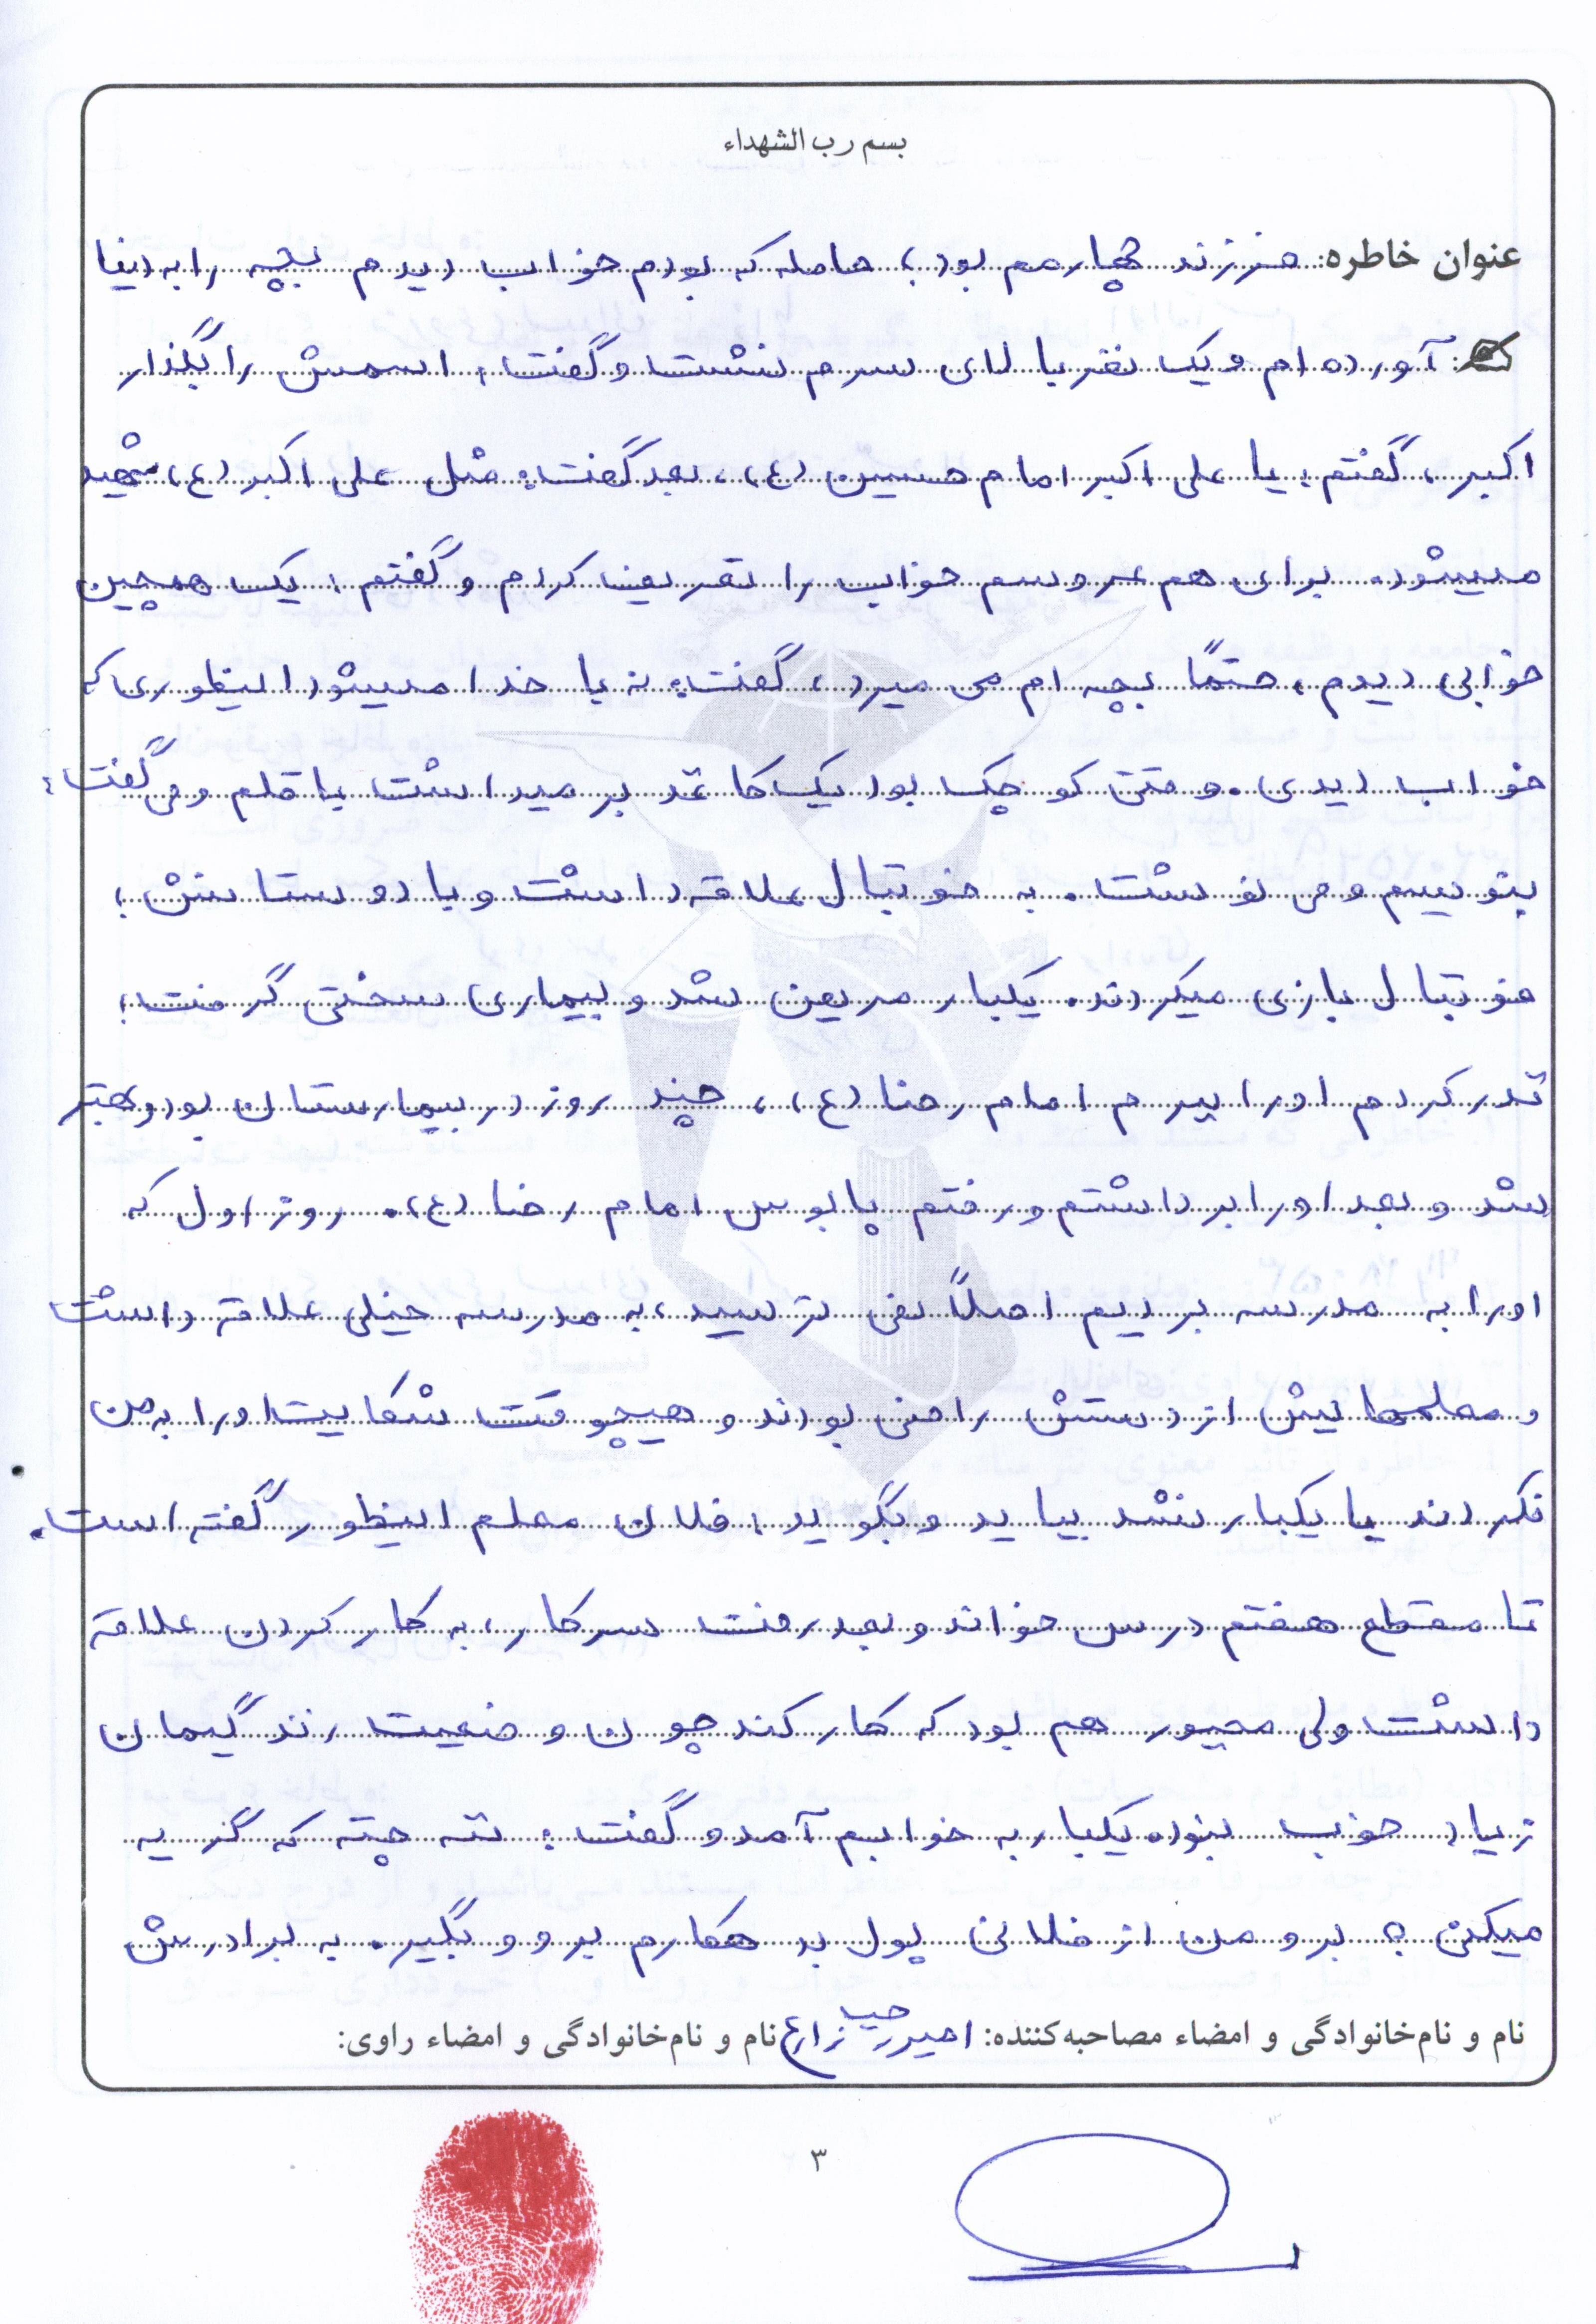 بسم رب الشهداء
عنوان خاطره: فرزند چهارمم بود، حامله که بودم خواب دیدم بچه را به دنیا
آورده ام و یک نفر بالای سرم نشست و گفت: اسمش را بگذار
اکبر، گفتم: یا علی اکبر امام حسین (ع)، بعد گفت: مثل علی اکبر (ع) شهید
میشود. برای هم عروسم خواب را تعریف کردم و گفتم: یک همچین
خوابی دیدم، حتمًا بچه ام می میرد، گفت: نه بابا خدا میشود اینطوری که
خواب دیدی. وقتی کوچک بود یک کاغذ بر میداشت با قلم و می گفت:
بنویسم و می نوشت. به فوتبال علاقه داشت و با دوستانش؛
فوتبال بازی میکردند. یکبار مریض شد و بیماری سختی گرفت؛
نذر کردم او را ببرم امام رضا (ع)، چند روز در بیمارستان بود و بهتر
شد و بعد او را برداشتم و رفتم پابوس امام رضا (ع). روز اول که
او را به مدرسه بردیم اصلاً نمی ترسید، به مدرسه خیلی علاقه داشت
و معلمهایش از دستش راضی بودند و هیچوقت شکایت او را به من
نکردند یا یکبار نشد بیاید و بگوید: فلان معلم اینطور گفته است.
تا مقطع هفتم درس خواند و بعد رفت سر کار، به کار کردن علاقه
داشت ولی مجبور هم بود که کار کند چون وضعیت زندگیمان
زیاد خوب نبود. یکبار به خوابم آمد و گفت: ننه چته که گریه
میکنی؟ برو من از فلانی پول بد همکارم برو و بگیر. به برادرش
نام و نام‌خانوادگی و امضاء مصاحبه‌کننده: امیررضا زارع نام و نام‌خانوادگی و امضاء راوی:
۳